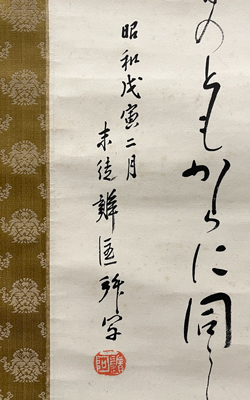 のともからに同し
昭和戊寅二月
末徒雞匡拜写